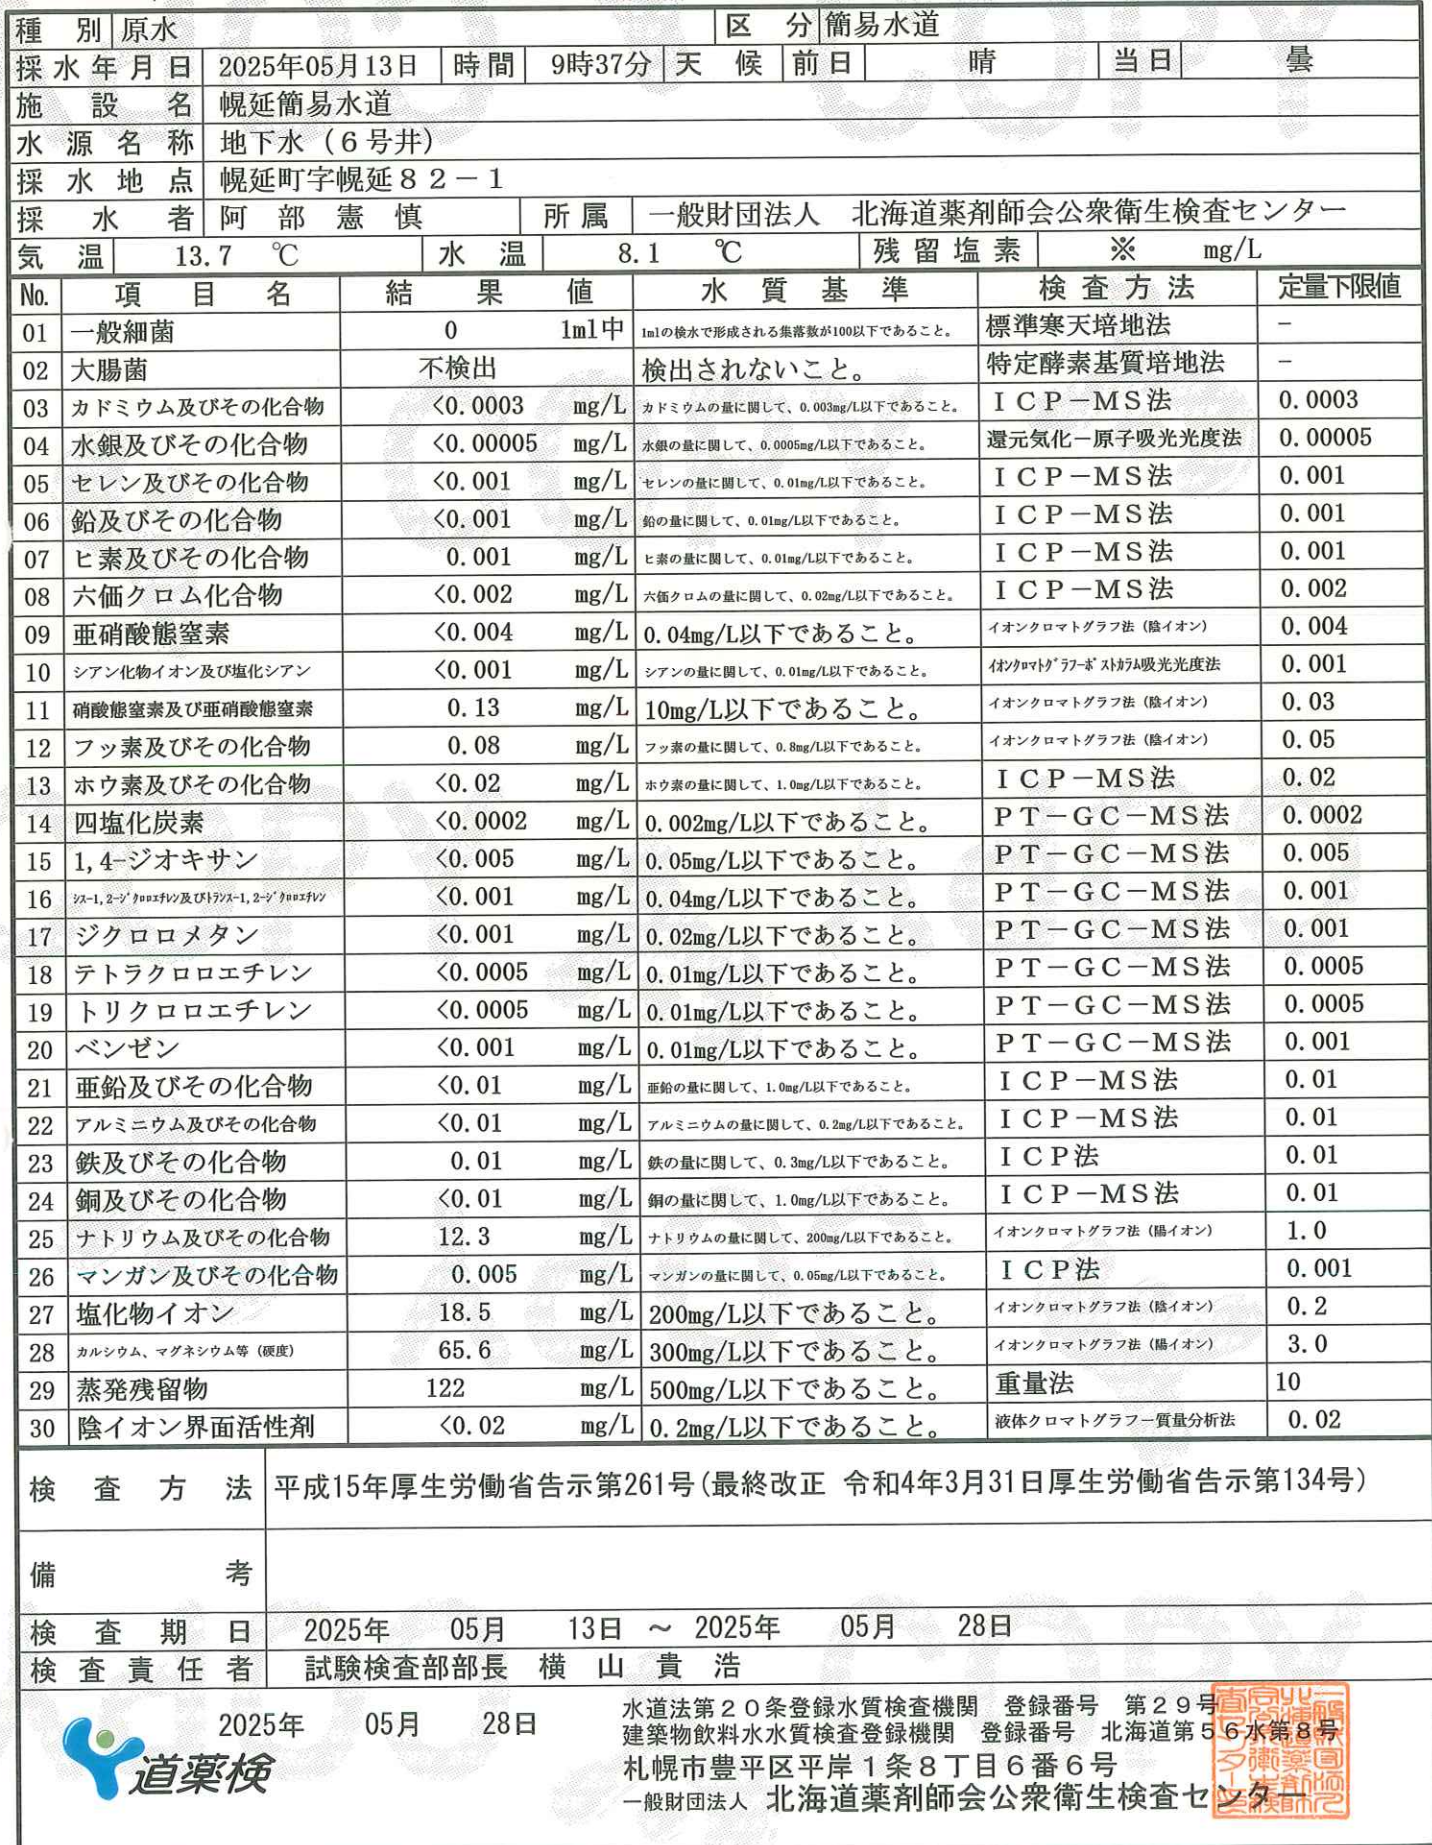 種別 原水 区分 簡易水道
採水年月日 2025年05月13日 時間 9時37分 天候 前日 晴 当日 曇
施設名 幌延簡易水道
水源名称 地下水（６号井）
採水地点 幌延町字幌延８２－１
採水者 阿部憲慎 所属 一般財団法人 北海道薬剤師会公衆衛生検査センター
気温 13.7 ℃ 水温 8.1 ℃ 残留塩素 ※ mg/L
No. 項目名 結果値 水質基準 検査方法 定量下限値
01 一般細菌 0 1ml中 1mlの検水で形成される集落数が100以下であること。 標準寒天培地法 －
02 大腸菌 不検出 検出されないこと。 特定酵素基質培地法 －
03 カドミウム及びその化合物 <0.0003 mg/L カドミウムの量に関して、0.003mg/L以下であること。 ＩＣＰ－ＭＳ法 0.0003
04 水銀及びその化合物 <0.00005 mg/L 水銀の量に関して、0.0005mg/L以下であること。 還元気化－原子吸光光度法 0.00005
05 セレン及びその化合物 <0.001 mg/L セレンの量に関して、0.01mg/L以下であること。 ＩＣＰ－ＭＳ法 0.001
06 鉛及びその化合物 <0.001 mg/L 鉛の量に関して、0.01mg/L以下であること。 ＩＣＰ－ＭＳ法 0.001
07 ヒ素及びその化合物 0.001 mg/L ヒ素の量に関して、0.01mg/L以下であること。 ＩＣＰ－ＭＳ法 0.001
08 六価クロム化合物 <0.002 mg/L 六価クロムの量に関して、0.02mg/L以下であること。 ＩＣＰ－ＭＳ法 0.002
09 亜硝酸態窒素 <0.004 mg/L 0.04mg/L以下であること。 イオンクロマトグラフ法（陰イオン） 0.004
10 シアン化物イオン及び塩化シアン <0.001 mg/L シアンの量に関して、0.01mg/L以下であること。 ｲｵﾝｸﾛﾏﾄｸﾞﾗﾌｰﾎﾟｽﾄｶﾗﾑ吸光光度法 0.001
11 硝酸態窒素及び亜硝酸態窒素 0.13 mg/L 10mg/L以下であること。 イオンクロマトグラフ法（陰イオン） 0.03
12 フッ素及びその化合物 0.08 mg/L フッ素の量に関して、0.8mg/L以下であること。 イオンクロマトグラフ法（陰イオン） 0.05
13 ホウ素及びその化合物 <0.02 mg/L ホウ素の量に関して、1.0mg/L以下であること。 ＩＣＰ－ＭＳ法 0.02
14 四塩化炭素 <0.0002 mg/L 0.002mg/L以下であること。 ＰＴ－ＧＣ－ＭＳ法 0.0002
15 1,4-ジオキサン <0.005 mg/L 0.05mg/L以下であること。 ＰＴ－ＧＣ－ＭＳ法 0.005
16 ｼｽ-1,2-ｼﾞｸﾛﾛｴﾁﾚﾝ及びﾄﾗﾝｽ-1,2-ｼﾞｸﾛﾛｴﾁﾚﾝ <0.001 mg/L 0.04mg/L以下であること。 ＰＴ－ＧＣ－ＭＳ法 0.001
17 ジクロロメタン <0.001 mg/L 0.02mg/L以下であること。 ＰＴ－ＧＣ－ＭＳ法 0.001
18 テトラクロロエチレン <0.0005 mg/L 0.01mg/L以下であること。 ＰＴ－ＧＣ－ＭＳ法 0.0005
19 トリクロロエチレン <0.0005 mg/L 0.01mg/L以下であること。 ＰＴ－ＧＣ－ＭＳ法 0.0005
20 ベンゼン <0.001 mg/L 0.01mg/L以下であること。 ＰＴ－ＧＣ－ＭＳ法 0.001
21 亜鉛及びその化合物 <0.01 mg/L 亜鉛の量に関して、1.0mg/L以下であること。 ＩＣＰ－ＭＳ法 0.01
22 アルミニウム及びその化合物 <0.01 mg/L アルミニウムの量に関して、0.2mg/L以下であること。 ＩＣＰ－ＭＳ法 0.01
23 鉄及びその化合物 0.01 mg/L 鉄の量に関して、0.3mg/L以下であること。 ＩＣＰ法 0.01
24 銅及びその化合物 <0.01 mg/L 銅の量に関して、1.0mg/L以下であること。 ＩＣＰ－ＭＳ法 0.01
25 ナトリウム及びその化合物 12.3 mg/L ナトリウムの量に関して、200mg/L以下であること。 イオンクロマトグラフ法（陽イオン） 1.0
26 マンガン及びその化合物 0.005 mg/L マンガンの量に関して、0.05mg/L以下であること。 ＩＣＰ法 0.001
27 塩化物イオン 18.5 mg/L 200mg/L以下であること。 イオンクロマトグラフ法（陰イオン） 0.2
28 カルシウム、マグネシウム等（硬度） 65.6 mg/L 300mg/L以下であること。 イオンクロマトグラフ法（陽イオン） 3.0
29 蒸発残留物 122 mg/L 500mg/L以下であること。 重量法 10
30 陰イオン界面活性剤 <0.02 mg/L 0.2mg/L以下であること。 液体クロマトグラフ－質量分析法 0.02
検査方法 平成15年厚生労働省告示第261号(最終改正 令和4年3月31日厚生労働省告示第134号)
備考
検査期日 2025年 05月 13日 ～ 2025年 05月 28日
検査責任者 試験検査部部長 横山貴浩
2025年 05月 28日
道薬検
水道法第２０条登録水質検査機関 登録番号 第２９号
建築物飲料水水質検査登録機関 登録番号 北海道第５６水第８号
札幌市豊平区平岸１条８丁目６番６号
一般財団法人 北海道薬剤師会公衆衛生検査センター